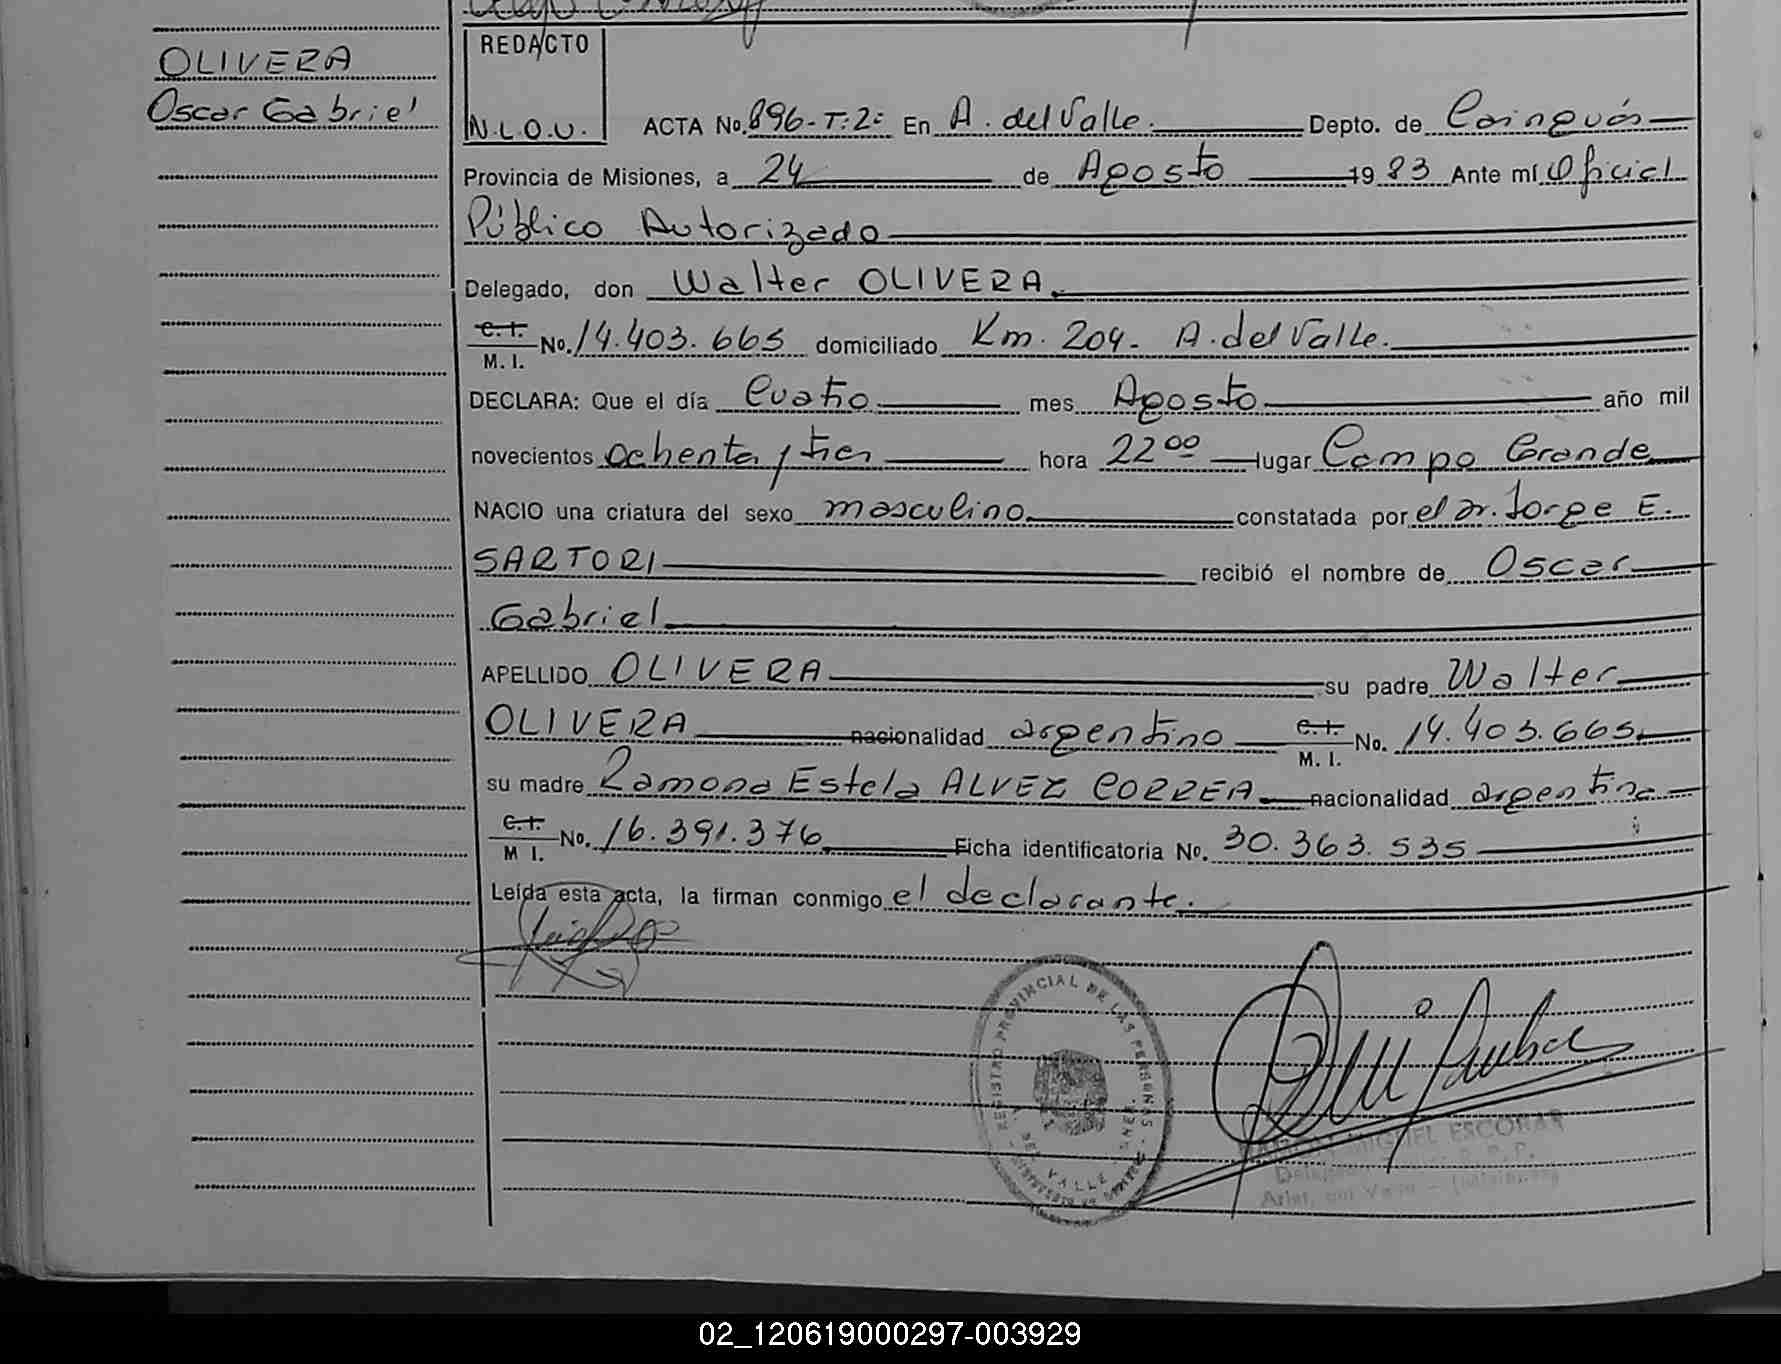 OLIVERA
Oscar Gabriel
REDACTO
N.L.O.U.
ACTA No. 896-T:2: En A. del Valle. Depto. de Cainguás
Provincia de Misiones, a 24 de Agosto 1983 Ante mí Oficial
Público Autorizado
Delegado, don Walter OLIVERA.
C.I.
M. I. No. 14.403.665 domiciliado Km. 204. A. del Valle.
DECLARA: Que el día Cuatro mes Agosto año mil
novecientos ochenta y tres hora 22 00 lugar Campo Grande
NACIO una criatura del sexo masculino constatada por el Dr. Jorge E.
SARTORI recibió el nombre de Oscar
Gabriel
APELLIDO OLIVERA su padre Walter
OLIVERA nacionalidad argentino C.I.
M. I. No. 14.403.665.
su madre Ramona Estela ALVEZ CORREA nacionalidad argentina
C.I.
M I. No. 16.391.376 Ficha identificatoria No. 30.363.535
Leída esta acta, la firman conmigo el declarante.
REGISTRO PROVINCIAL DE LAS PERSONAS
DEL VALLE
MIGUEL ESCOBAR
02_120619000297-003929